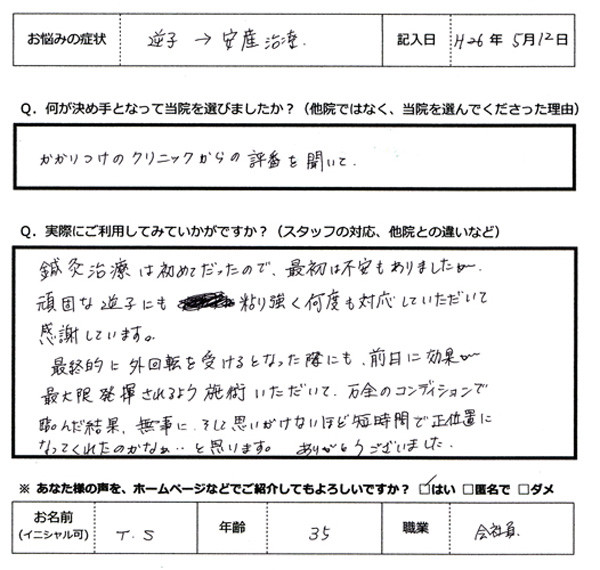 お悩みの症状 逆子 → 安産治療. 記入日 H26年 5月12日
Q．何が決め手となって当院を選びましたか？（他院ではなく、当院を選んでくださった理由）
かかりつけのクリニックからの評番を聞いて.
Q．実際にご利用してみていかがですか？（スタッフの対応、他院との違いなど）
鍼灸治療は初めてだったので、最初は不安もありましたが.
頑固な逆子にも 粘り強く何度も対応していただいて
感謝しています。
最終的に外回転を受けるとなった際にも、前日に効果が
最大限発揮されるよう施術いただいて、万全のコンディションで
臨んだ結果、無事に、そして思いがけないほど短時間で正位置に
なってくれたのかなぁ…と思います。 ありがとうございました.
※ あなた様の声を、ホームページなどでご紹介してもよろしいですか？ ☑はい □匿名で □ダメ
お名前 年齢 職業
(イニシャル可) T. S 35 会社員.